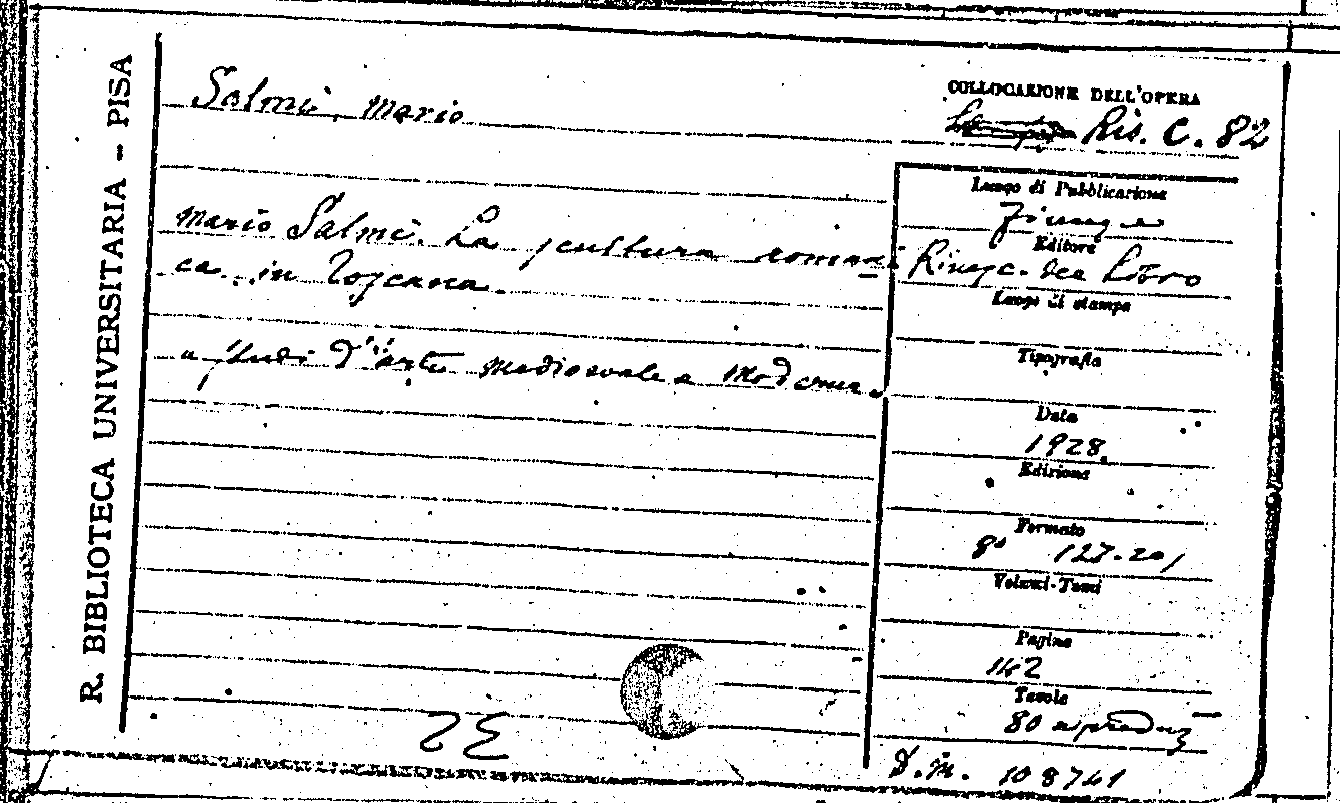 R. BIBLIOTECA UNIVERSITARIA - PISA
Salmi, Mario
COLLOCAZIONE DELL'OPERA
Ris. C. 82
Mario Salmi. La scultura romani
ca in Toscana.
Studi d'arte medioevale e moderna
Luogo di Pubblicazione
Firenze
Editore
Rinasc. del Libro
Luogo di stampa
Tipografia
Data
1928.
Edizione
Formato
8°
Volumi-Tomi
Pagine
142
Tavole
80
108741